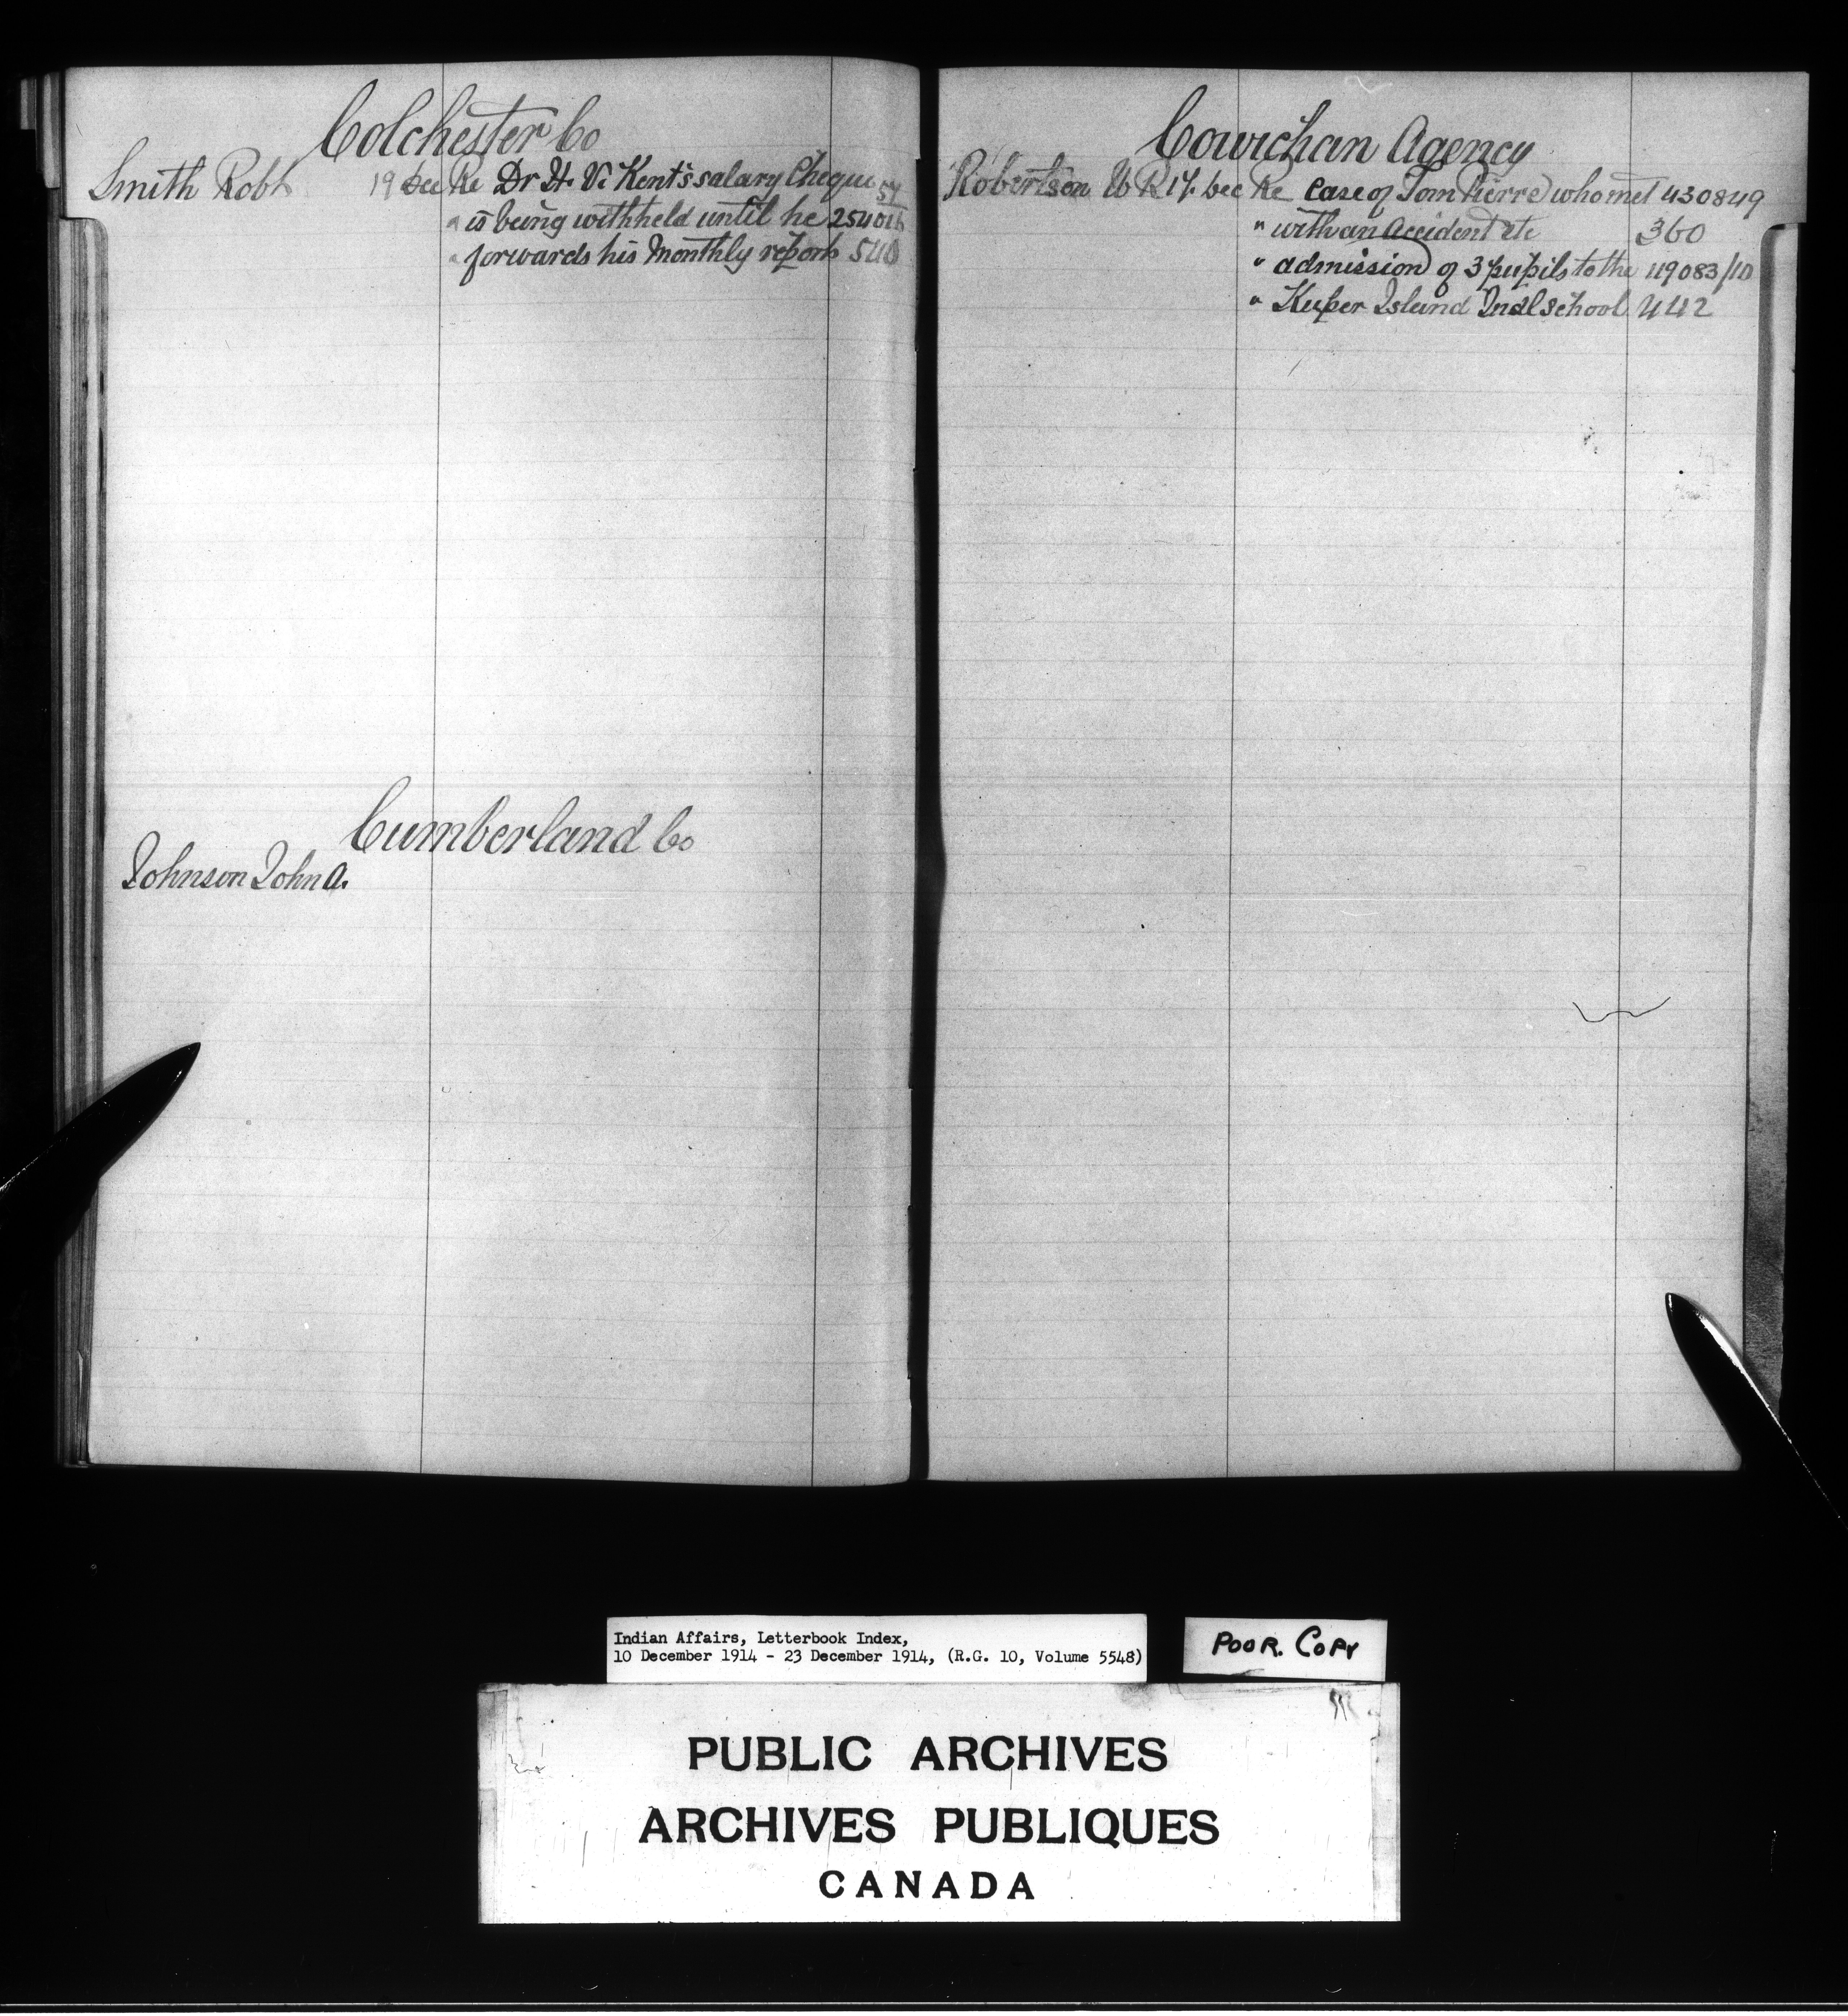 Colchester Co
Smith Robt 19 Dec Re Dr H. V. Kent's salary Cheque 57
" is being withheld until he 254016
" forwards his Monthly report 540
Cumberland Co
Johnson John A.
Cowichan Agency
Robertson W R 17 Dec Re Case of Tom Pierre who met 430849
" with an accident etc 360
" admission of 3 pupils to the 119083/10
" Kuper Island Indl school 442
Indian Affairs, Letterbook Index,
10 December 1914 - 23 December 1914, (R.G. 10, Volume 5548)
POOR. COPY
PUBLIC ARCHIVES
ARCHIVES PUBLIQUES
CANADA